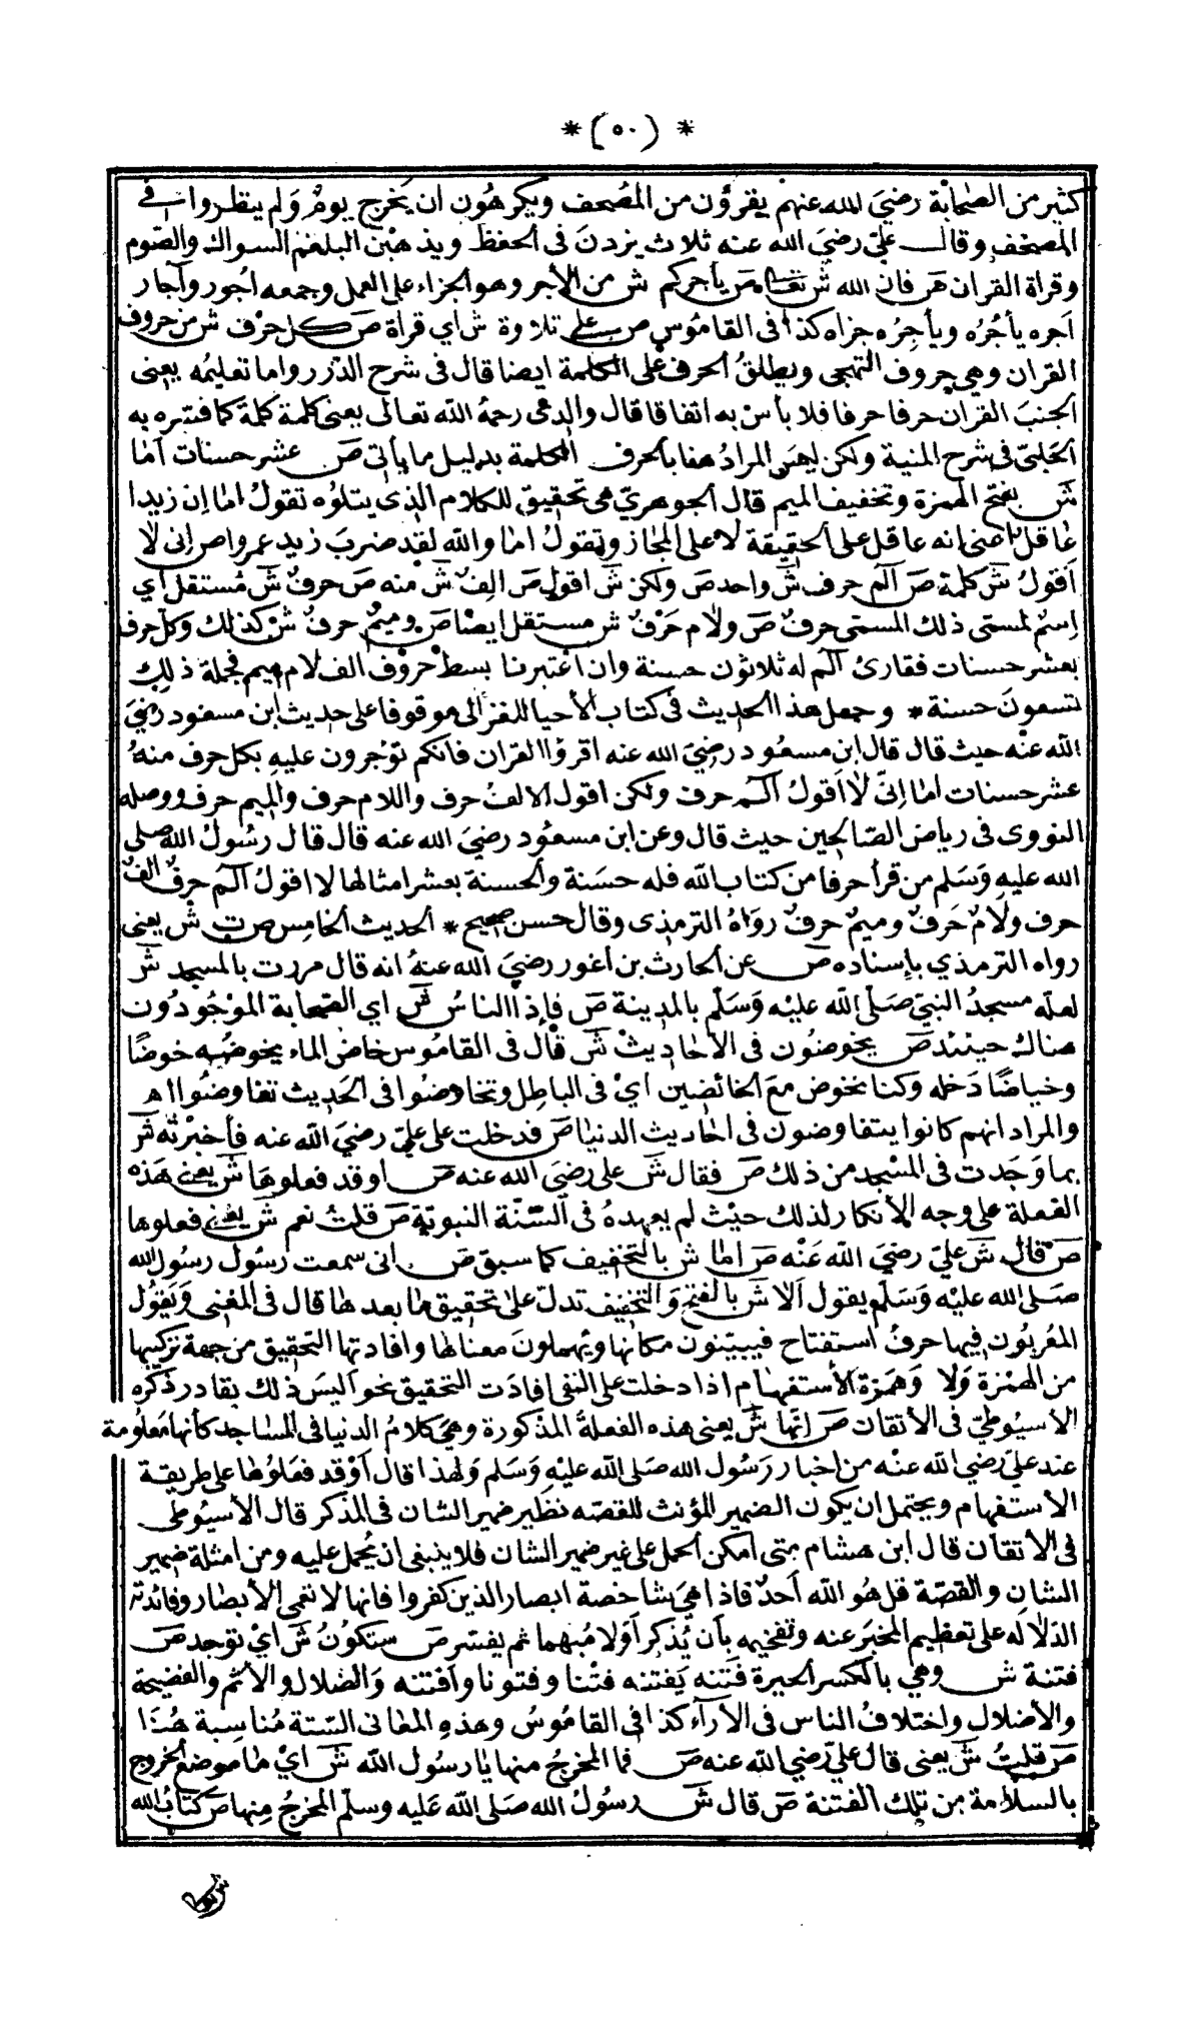 * (٥٠) *
كثير من الصحابة رضي الله عنهم يقرؤن من المصحف ويكرهون ان يخرج يوم ولم ينظروا في
المصحف وقال علي رضي الله عنه ثلاث يزدن في الحفظ ويذهبن البلغم السواك والصوم
وقراة القران ص فان الله ش تعالى ص يأجركم ش من الأجر وهو الجزاء على العمل وجمعه اجور وآجار
آجره يأجُرُه ويأجِرُه جزاه كذا في القاموس ص على تلاوة ش اي قراة ص كل حرف ش من حروف
القران وهي حروف التهجى ويطلق الحرف على الكلمة ايضا قال في شرح الدرر واما تعليمه يعنى
الجنب القران حرفا حرفا فلا بأس به اتفاقا قال والدى رحمه الله تعالى يعنى كلمة كلمة كما فسره به
الحلبي في شرح المنية ولكن ليس المراد هنا بالحرف الكلمة بدليل ما يأتى ص عشر حسنات اما
ش بفتح الهمزة وتخفيف الميم قال الجوهري هى تحقيق للكلام الذى يتلوه تقول اما ان زيدا
عاقل اعنى انه عاقل على الحقيقة لا على المجاز وتقول اما والله لقد ضرب زيد عمروا ص انى لا
اقول ش كلمة ص الم حرف ش واحد ص ولكن ش اقول ص الف ش منه ص حرف ش مستقل اي
اسم لمسمى ذلك المسمى حرف ص ولام حرف ش مستقل ايضا ص وميم حرف ش كذلك وكل حرف
بعشر حسنات فقارئ الم له ثلاثون حسنة وان اعتبرنا بسط حروف الف لام ميم فجملة ذلك
تسعون حسنة * وجعل هذا الحديث في كتاب الأحيا للغزالى موقوفا على حديث ابن مسعود رضي
الله عنه حيث قال قال ابن مسعود رضي الله عنه اقرؤا القران فانكم تؤجرون عليه بكل حرف منه
عشر حسنات اما انى لا اقول الم حرف ولكن اقول الالف حرف واللام حرف والميم حرف ووصله
النووى في رياض الصالحين حيث قال وعن ابن مسعود رضي الله عنه قال قال رسول الله صلى
الله عليه وسلم من قرأ حرفا من كتاب الله فله حسنة والحسنة بعشر امثالها لا اقول الم حرف الف
حرف ولام حرف وميم حرف رواه الترمذى وقال حسن صحيح * الحديث الخامس ص ت ش يعنى
رواه الترمذي بإسناده ص عن الحارث بن اعور رضي الله عنه انه قال مررت بالمسجد ش
لعله مسجد النبي صلى الله عليه وسلم بالمدينة ص فإذا الناس ش اي الصحابة الموجودون
هناك حينئذ ص يخوضون في الأحاديث ش قال في القاموس خاض الماء يخوضه خوضا
وخياضا دخله وكنا نخوض مع الخائضين اي في الباطل وتخاوضوا في الحديث تفاوضوا اه
والمراد انهم كانوا يتفاوضون في احاديث الدنيا ص فدخلت على علي رضي الله عنه فأخبرته ش
بما وجدت في المسجد من ذلك ص فقال ش على رضي الله عنه ص اوقد فعلوها ش يعنى هذه
الفعلة على وجه الأنكار لذلك حيث لم يعهده في السنة النبوية ص قلت نعم ش يعنى فعلوها
ص قال ش علي رضي الله عنه ص اما ش بالتخفيف كما سبق ص انى سمعت رسول رسول الله
صلى الله عليه وسلم يقول ألا ش بالفتح والتخفيف تدل على تحقيق ما بعدها قال في المغنى ويقول
المعربون فيها حرف استفتاح فيبينون مكانها ويهملون معناها وافادتها التحقيق من جهة تركيبها
من الهمزة ولا وهمزة الأستفهام اذا دخلت على النفى افادت التحقيق نحو اليس ذلك بقادر ذكره
الأسيوطي في الأتقان ص انها ش يعنى هذه الفعلة المذكورة وهي كلام الدنيا في المساجد كأنها معلومة
عند علي رضي الله عنه من اخبار رسول الله صلى الله عليه وسلم ولهذا قال أوقد فعلوها على طريقة
الأستفهام ويحتمل ان يكون الضمير المؤنث للقصه نظير ضمير الشان في المذكر قال الأسيوطى
في الأتقان قال ابن هشام متى امكن الحمل على غير ضمير الشان فلا ينبغى ان يحمل عليه ومن امثلة ضمير
الشان والقصة قل هو الله احد فاذا هي شاخصة ابصار الذين كفروا فانها لا تعمى الأبصار وفائدته
الدلاله على تعظيم المخبر عنه وتفخيمه بأن يذكر أولا مبهما ثم يفسر ص ستكون ش اي توجد ص
فتنة ش وهي بالكسر الحيرة فتنه يفتنه فتنا وفتونا وافتنه والضلال والأثم والفضيحة
والأضلال واختلاف الناس في الآرآء كذا في القاموس وهذه المعانى الستة مناسبة هنا
ص قلت ش يعنى قال علي رضي الله عنه ص فما المخرج منها يا رسول الله ش اي ما موضع الخروج
بالسلامة من تلك الفتنة ص قال ش رسول الله صلى الله عليه وسلم المخرج منها ص كتاب الله